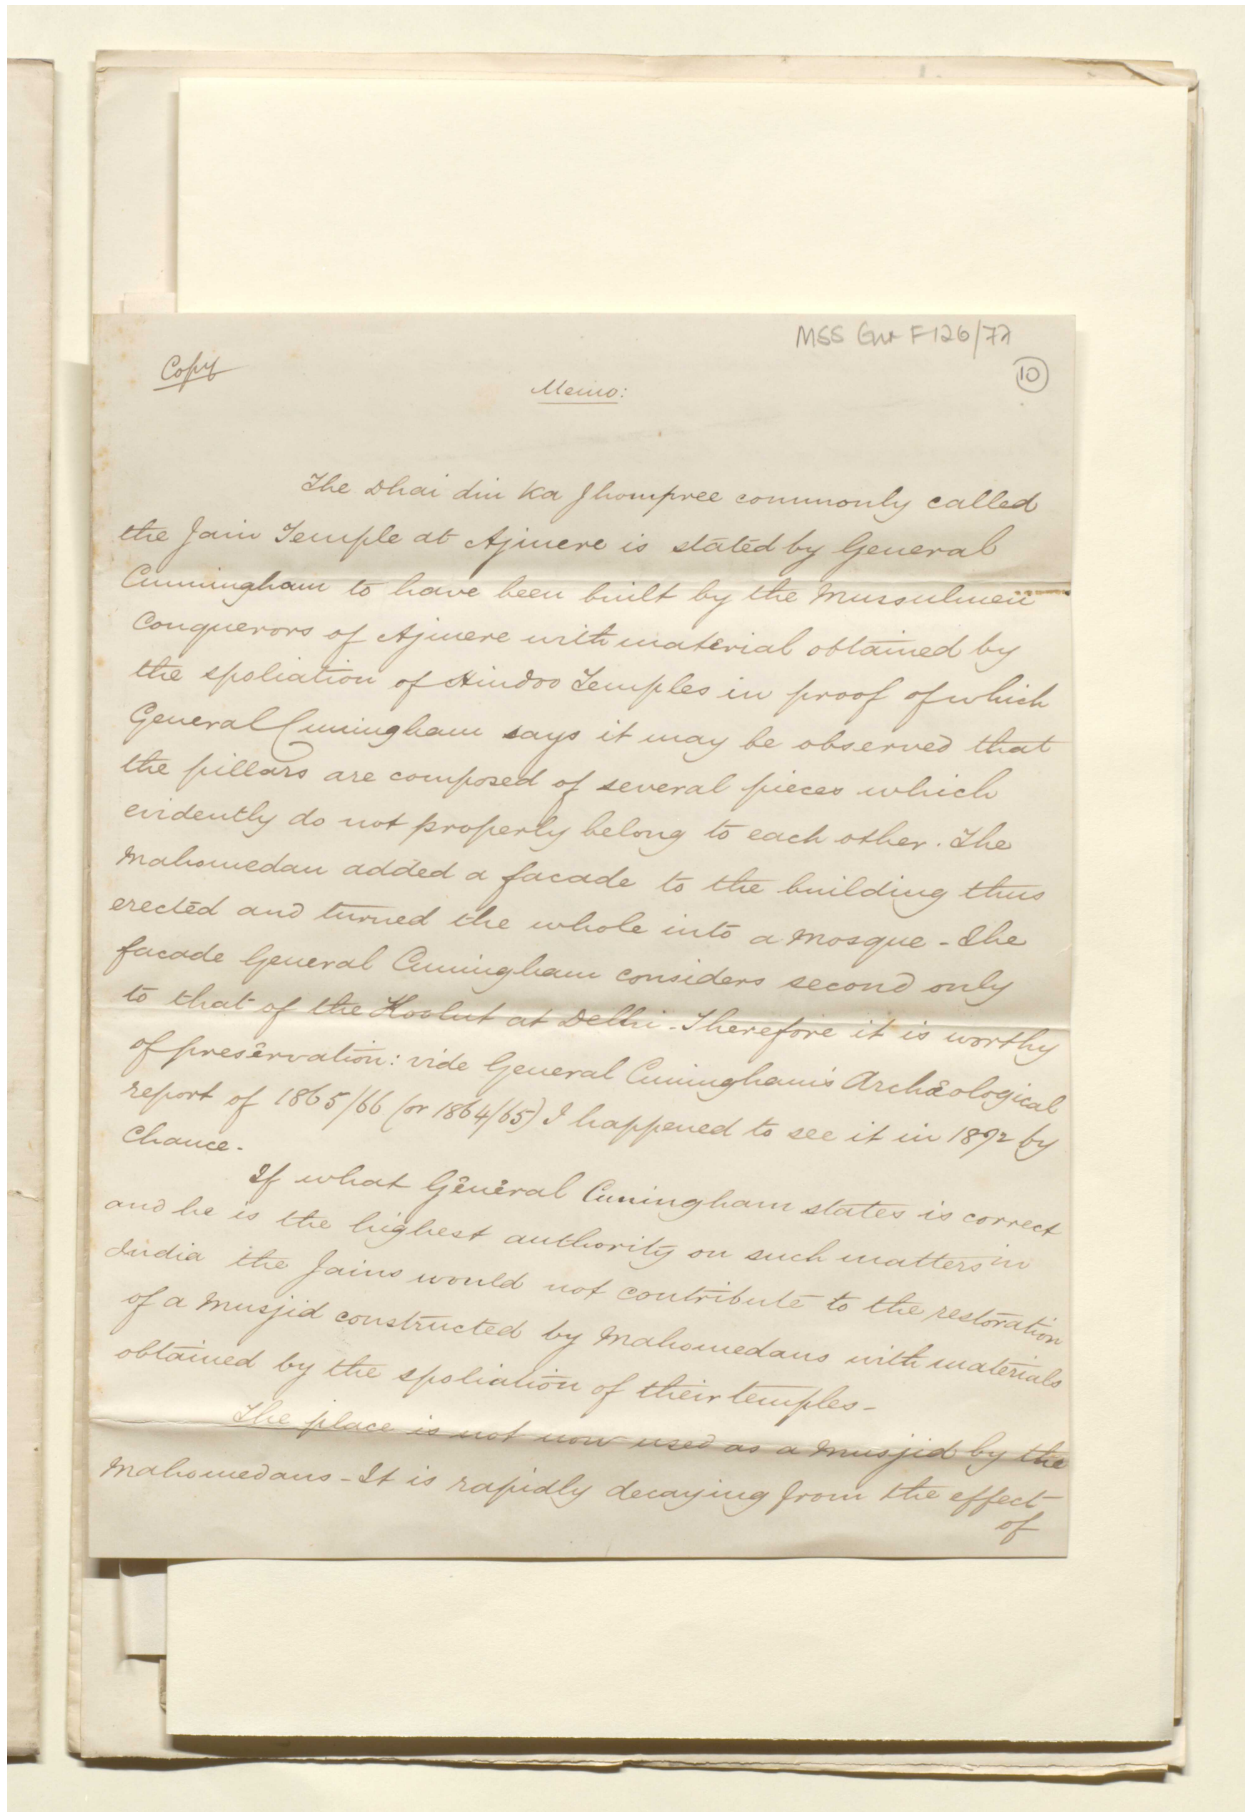 MSS Eur F126/77
10
Copy
Memo:
The Dhai din Ka Jhompree commonly called
the Jain Temple at Ajmere is stated by General
Cunningham to have been built by the Mussulmen
Conquerors of Ajmere with material obtained by
the spoliation of Hindoo Temples in proof of which
General Cunningham says it may be observed that
the pillars are composed of several pieces which
evidently do not properly belong to each other. The
Mahomedan added a facade to the building thus
erected and turned the whole into a Mosque - The
facade General Cuningham considers second only
to that of the Kootut at Delhi - Therefore it is worthy
of preservation: vide General Cuningham's Archæological
report of 1865/66 (or 1864/65) I happened to see it in 1892 by
Chance.
If what General Cuningham states is correct
and he is the highest authority on such matters in
India the Jains would not contribute to the restoration
of a Musjid constructed by Mahomedans with materials
obtained by the spoliation of their temples -
The place is not now used as a Musjid by the
Mahomedans - It is rapidly decaying from the effect
of